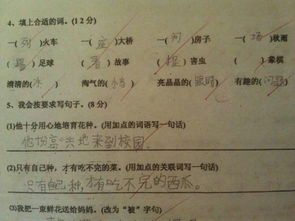 4、填上合适的词。(12分)
一(列)火车 一(座)大桥 一(间)房子 一(场)秋雨
(踢)足球 (看)故事 ( )害虫 ( )象棋
清清的(水) 淘气的( ) 亮晶晶的(眼睛) 有趣的(问题)
5、我会按要求写句子。(8分)
(1)他十分用心地培育花种。(用加点的词语写一句话)
他怀高兴地来到校园
(2)只有自己种，才有吃不完的菜。(用加点的关联词写一句话)
只有自己种，才有吃不完的西瓜。
(3)我把一束鲜花送给妈妈。(改为“被”字句)